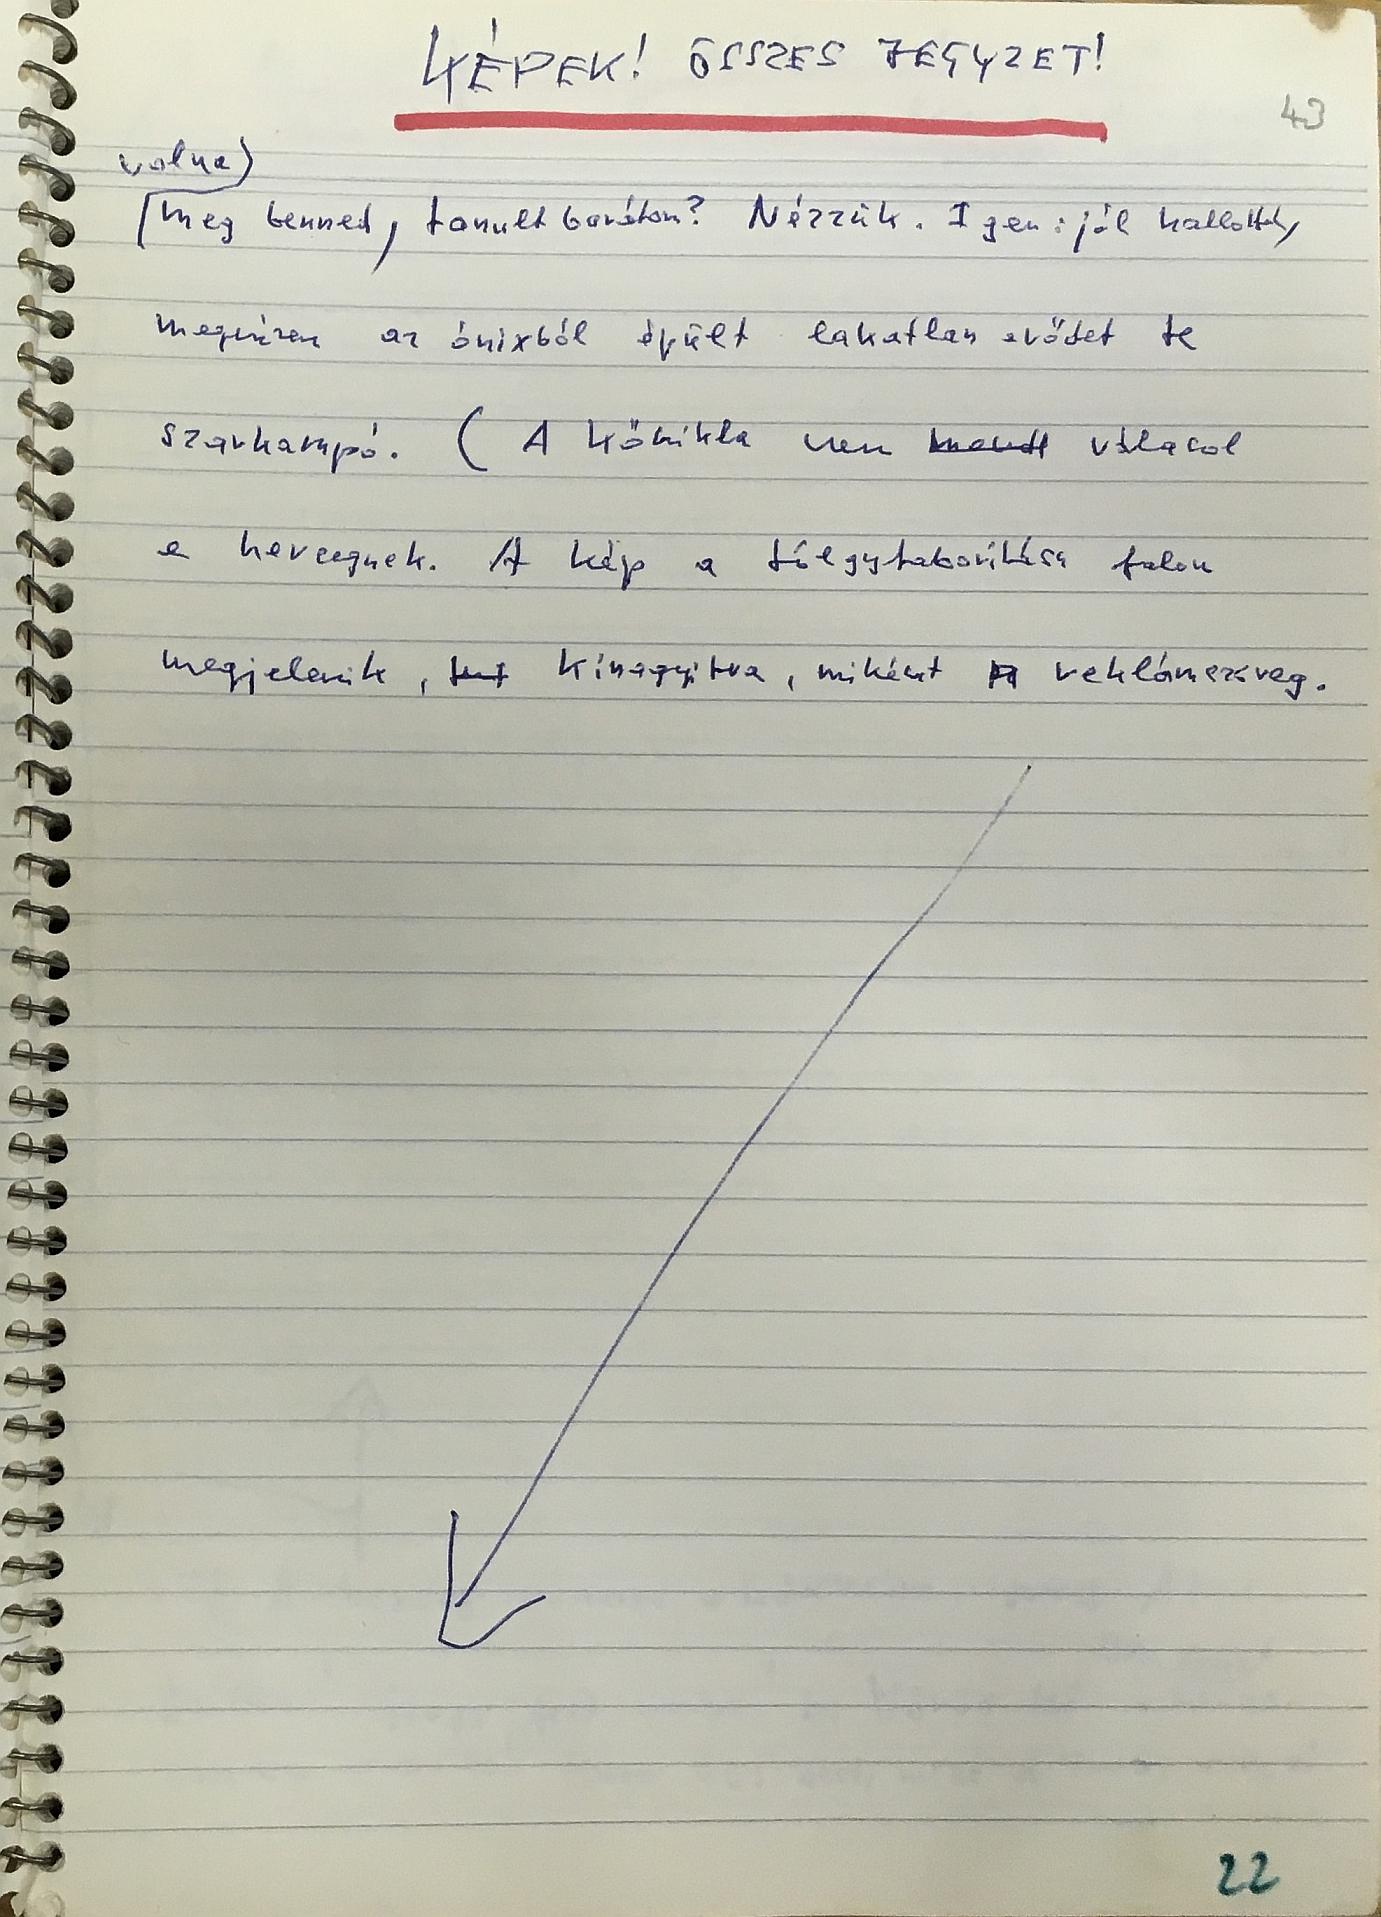 KÉPEK! ÖSSZES JEGYZET!
43
volna)
meg benned, tanult barátom? Nézzük. Igen: jól hallottad,
megvárom az ónixból épült lakatlan erődet te
szarkarapó. (A kőszikla nem válaszol
a hercegnek. A kép a tölgyfaborítású falon
megjelenik, kinagyítva, miként reklámszöveg.
22